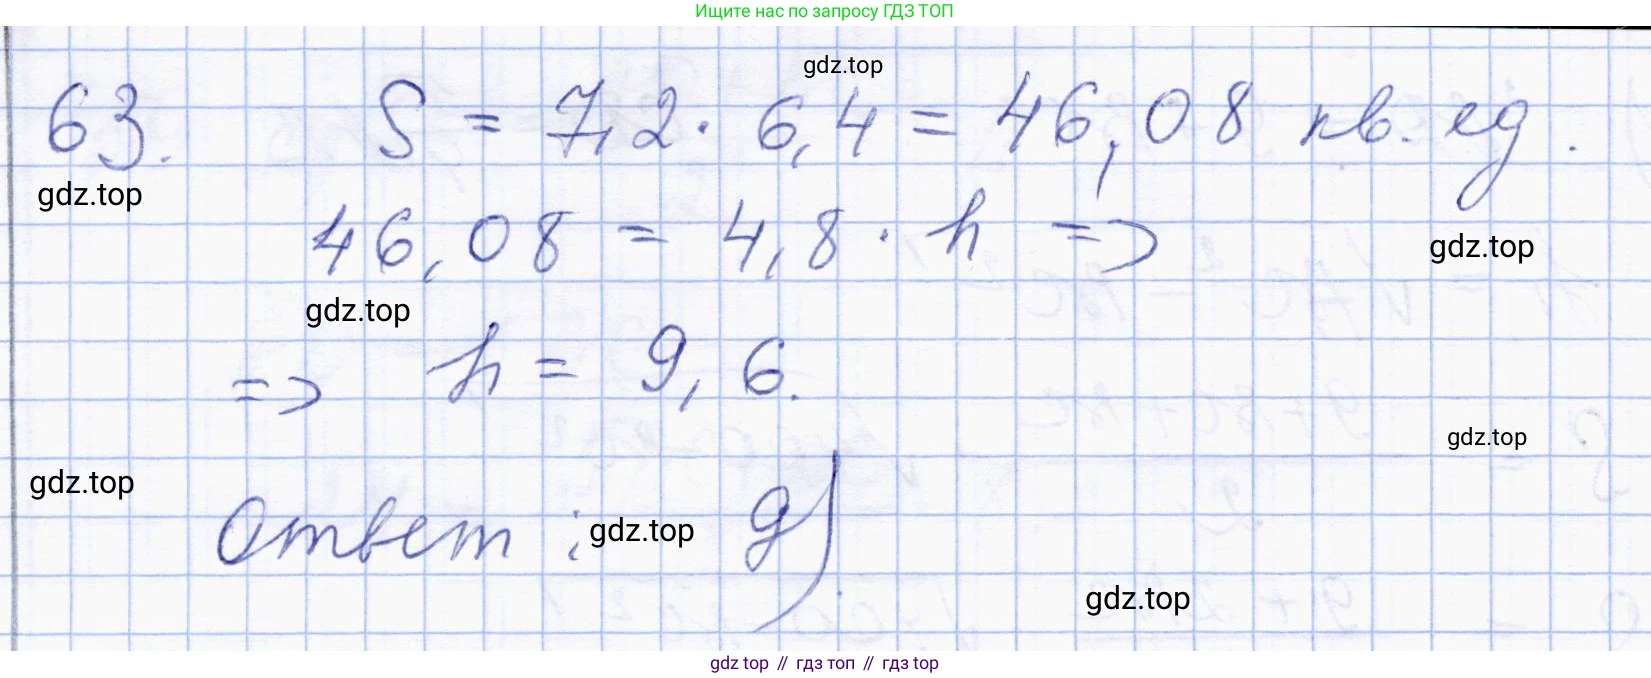 Ищите нас по запросу ГДЗ ТОП
gdz.top
63. S = 7,2 · 6,4 = 46,08 кв. ед.
gdz.top
46,08 = 4,8 · h =>
gdz.top
gdz.top
=> h = 9,6.
gdz.top
gdz.top
Ответ: д)
gdz.top
gdz.top
gdz top // гдз топ // гдз top